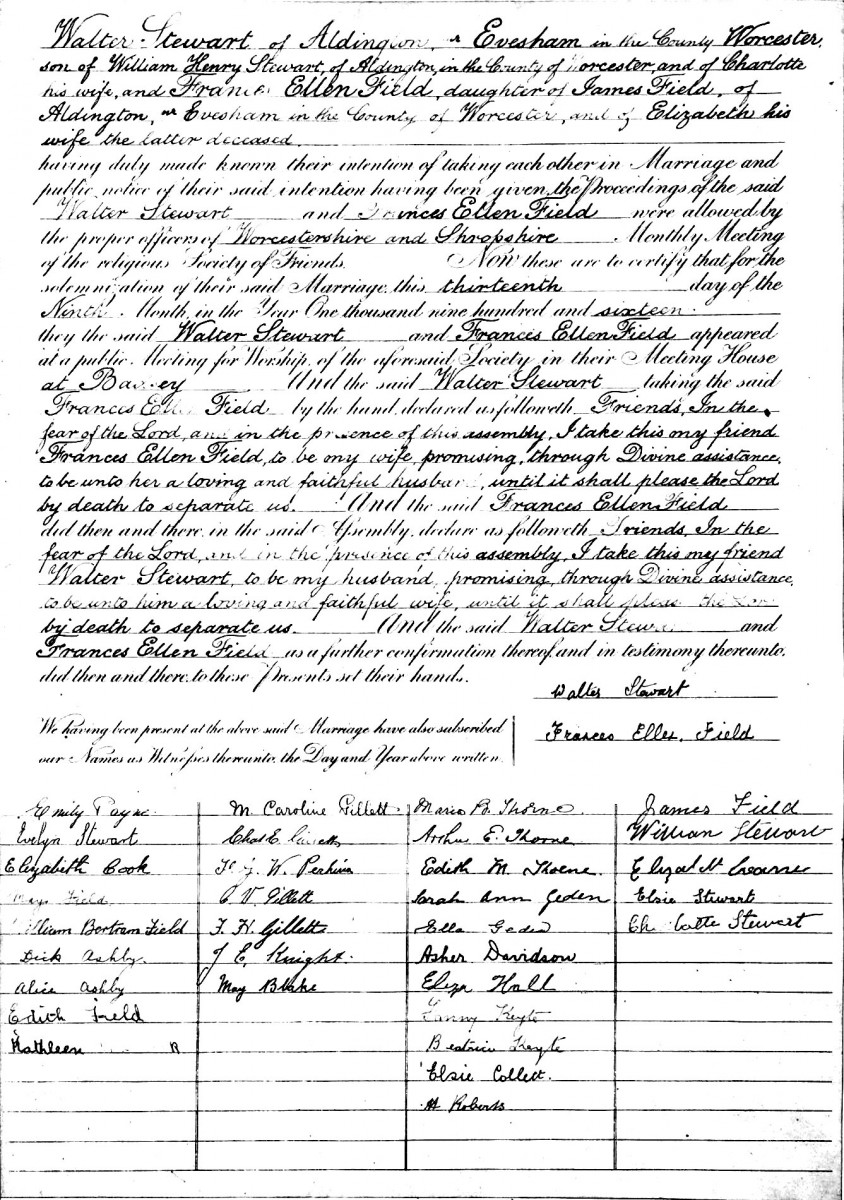 Walter Stewart of Aldington, nr Evesham in the County Worcester,
son of William Henry Stewart, of Aldington, in the County of Worcester, and of Charlotte
his wife, and Frances Ellen Field, daughter of James Field, of
Aldington, nr Evesham in the County of Worcester, and of Elizabeth his
wife the latter deceased
having duly made known their intention of taking each other in Marriage and
public notice of their said intention having been given, the Proceedings of the said
Walter Stewart and Frances Ellen Field were allowed by
the proper officers of Worcestershire and Shropshire Monthly Meeting
of the religious Society of Friends. Now these are to certify that for the
solemnization of their said Marriage this thirteenth day of the
Ninth Month, in the Year One thousand nine hundred and sixteen
they the said Walter Stewart and Frances Ellen Field appeared
at a public Meeting for Worship, of the aforesaid Society in their Meeting House
at And the said Walter Stewart taking the said
Frances Ellen Field by the hand, declared as followeth Friends, In the
fear of the Lord, and in the presence of this assembly, I take this my friend
Frances Ellen Field, to be my wife, promising, through Divine assistance,
to be unto her a loving and faithful husband, until it shall please the Lord
by death to separate us. And the said Frances Ellen Field
did then and there, in the said Assembly, declare as followeth Friends, In the
fear of the Lord, and in the presence of this assembly, I take this my friend
Walter Stewart, to be my husband, promising, through Divine assistance,
to be unto him a loving and faithful wife, until it shall please the Lord
by death to separate us. And the said Walter Stewart and
Frances Ellen Field as a further confirmation thereof, and in testimony thereunto,
did then and there to these Presents set their hands.
Walter Stewart
Frances Ellen Field
We having been present at the above said Marriage have also subscribed
our Names as Witnesses thereunto, the Day and Year above written
Emily Payne
Evelyn Stewart
Elizabeth Cook
Field
William Bertram Field
Dick Ashby
Alice Ashby
Edith Field
Kathleen
M. Caroline Gillett
Chas E. Gillett
W. Perkins
C V Gillett
F. H. Gillett
J E. Knight
May Blake
B. Thorne
Arthur E. Thorne
Edith M. Thorne
Sarah Ann Geden
Ella Geden
Asher Davidson
Eliza Hall
Fanny Keyte
Beatrice Keyte
Elsie Collett.
M Roberts
James Field
William Stewart
Elizabeth
Elsie Stewart
Charlotte Stewart